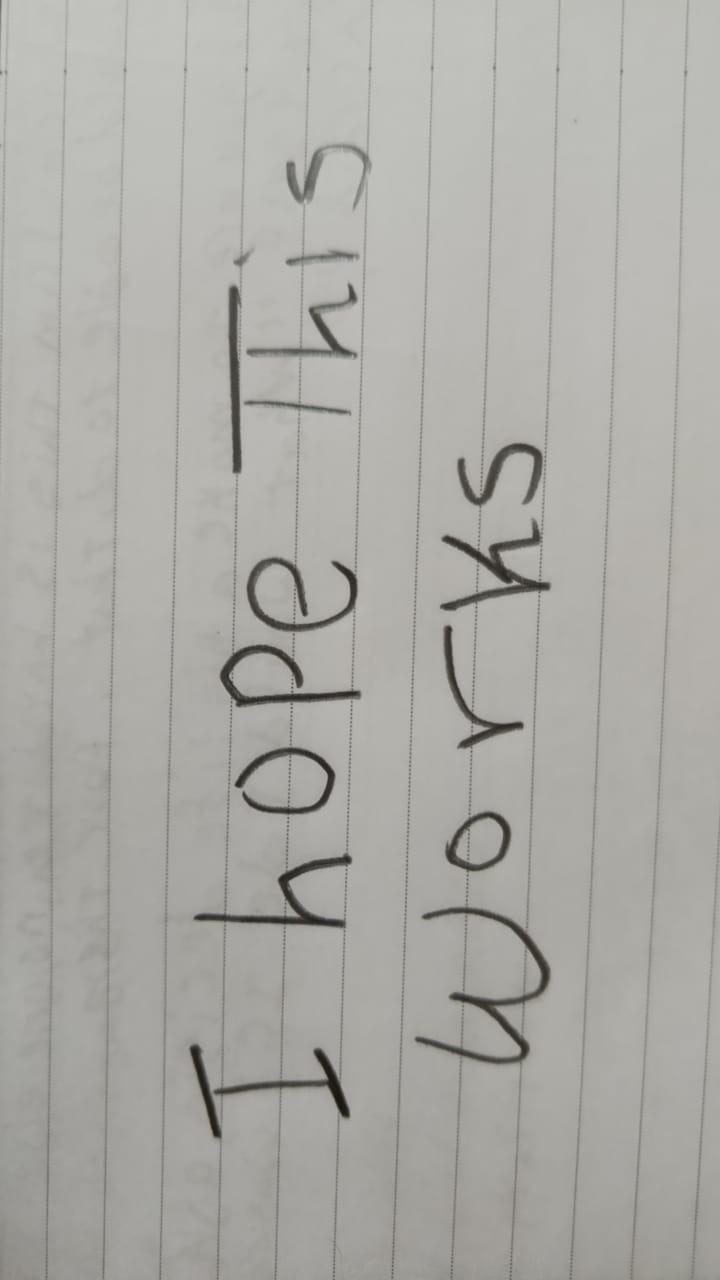 I hope This
Works